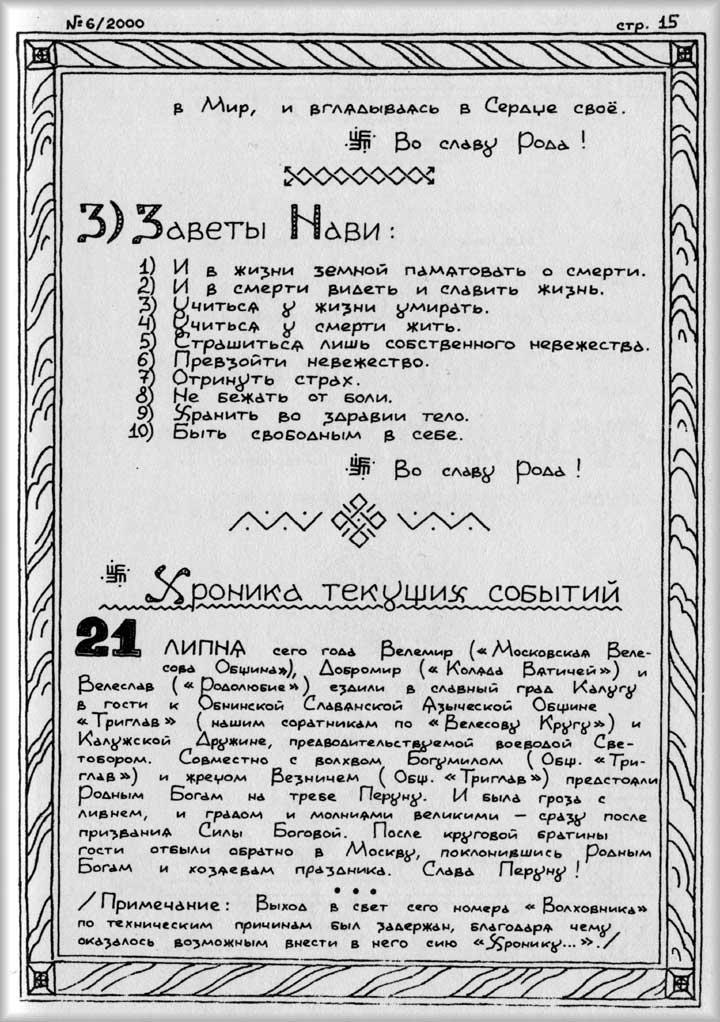 №6/2000 стр. 15
в Мир, и вглядываясь в Сердце своё.
Во славу Рода!
3) Заветы Нави:
1) И в жизни земной памятовать о смерти.
2) И в смерти видеть и славить жизнь.
3) Учиться у жизни умирать.
4) Учиться у смерти жить.
5) Страшиться лишь собственного невежества.
6) Превзойти невежество.
7) Отринуть страх.
8) Не бежать от боли.
9) Хранить во здравии тело.
10) Быть свободным в себе.
Во славу Рода!
Хроника текущих событий
21 ЛИПНЯ сего года Велемир («Московская Веле-
сова Община»), Добромир («Коляда Вятичей») и
Велеслав («Родолюбие») ездили в славный град Калугу
в гости к Обнинской Славянской Языческой Общине
«Триглав» (нашим соратникам по «Велесову Кругу») и
Калужской Дружине, предводительствуемой воеводой Све-
тобором. Совместно с волхвом Богумилом (Общ. «Три-
глав») и жрецом Везничем (Общ. «Триглав») предстояли
Родным Богам на требе Перуну. И была гроза с
ливнем, и градом и молниями великими – сразу после
призвания Силы Боговой. После круговой братины
гости отбыли обратно в Москву, поклонившись Родным
Богам и хозяевам праздника. Слава Перуну!
• • •
/Примечание: Выход в свет сего номера «Волховника»
по техническим причинам был задержан, благодаря чему
оказалось возможным внести в него сию «Хронику...»./